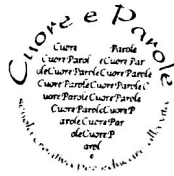 Cuore e Parole
Cuore Parole
Cuore Parol eCuore Par
oleCuore ParoleCuore Parole
Cuore ParoleCuore Parole C
uore ParoleCuore Parole
Cuore ParoleCuore P
aroleCuore Par
oleCuore P
arol
e
scuola creativa per educare alla vita